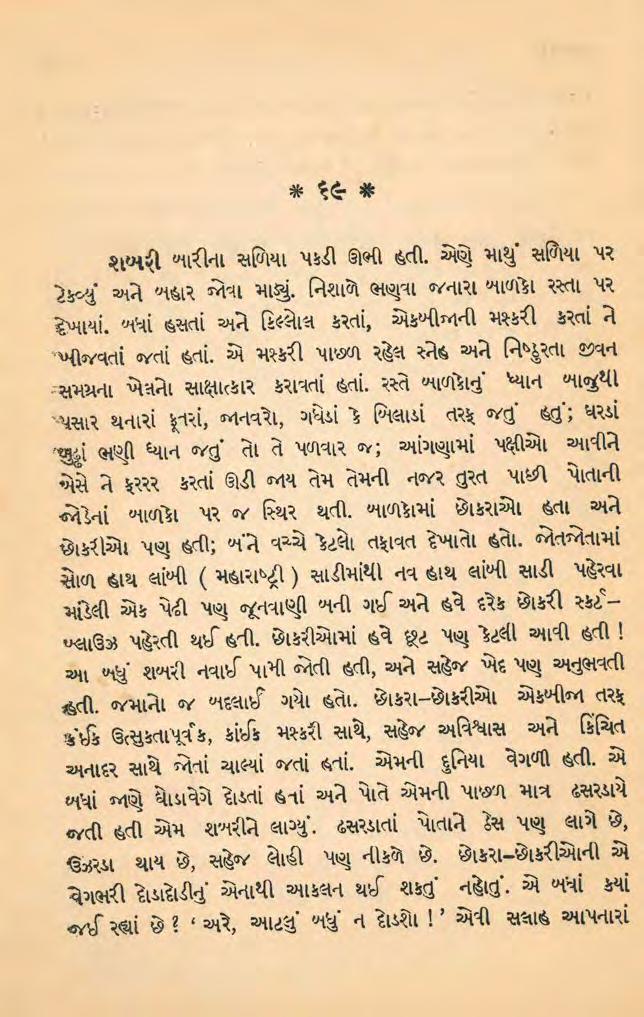 * ૬૯ *
શબરી બારીના સળિયા પકડી ઊભી હતી. એણે માથું સળિયા પર
ટેકવ્યું અને બહાર જોવા માંડ્યું. નિશાળે ભણવા જનારા બાળકો રસ્તા પર
દેખાયાં. બધાં હસતાં અને કિલ્લોલ કરતાં, એકબીજાની મશ્કરી કરતાં ને
ખીજવતાં જતાં હતાં. એ મશ્કરી પાછળ રહેલ સ્નેહ અને નિષ્ઠુરતા જીવન
સમગ્રના ખેલનો સાક્ષાત્કાર કરાવતાં હતાં. રસ્તે બાળકોનું ધ્યાન બાજુથી
પસાર થનારાં કૂતરાં, જાનવરો, ગધેડાં કે બિલાડાં તરફ જતું હતું; ઘરડાં
બુઢ્ઢાં ભણી ધ્યાન જતું તો તે પળવાર જ; આંગણામાં પક્ષીઓ આવીને
બેસે ને ફરરર કરતાં ઊડી જાય તેમ તેમની નજર તુરત પાછી પોતાની
જોડેનાં બાળકો પર જ સ્થિર થતી. બાળકોમાં છોકરાઓ હતા અને
છોકરીઓ પણ હતી; બંને વચ્ચે કેટલો તફાવત દેખાતો હતો. જોતજોતામાં
સોળ હાથ લાંબી ( મહારાષ્ટ્રી ) સાડીમાંથી નવ હાથ લાંબી સાડી પહેરવા
માંડેલી એક પેઢી પણ જૂનવાણી બની ગઈ અને હવે દરેક છોકરી સ્કર્ટ–
બ્લાઉઝ પહેરતી થઈ હતી. છોકરીઓમાં હવે છૂટ પણ કેટલી આવી હતી !
આ બધું શબરી નવાઈ પામી જોતી હતી, અને સહેજ ખેદ પણ અનુભવતી
હતી. જમાનો જ બદલાઈ ગયો હતો. છોકરા–છોકરીઓ એકબીજા તરફ
કંઈક ઉત્સુકતાપૂર્વક, કાંઈક મશ્કરી સાથે, સહેજ અવિશ્વાસ અને કિંચિત
અનાદર સાથે જોતાં ચાલ્યાં જતાં હતાં. એમની દુનિયા વેગળી હતી. એ
બધાં જાણે ઘોડાવેગે દોડતાં હતાં અને પોતે એમની પાછળ માત્ર ઢસરડાયે
જતી હતી એમ શબરીને લાગ્યું. ઢસરડાતાં પોતાને ઠેસ પણ લાગે છે,
ઉઝરડા થાય છે, સહેજ લોહી પણ નીકળે છે. છોકરા–છોકરીઓની એ
વેગભરી દોડાદોડીનું એનાથી આકલન થઈ શકતું નહોતું. એ બધાં ક્યાં
જઈ રહ્યાં છે ? ‘ અરે, આટલું બધું ન દોડશો ! ’ એવી સલાહ આપનારાં